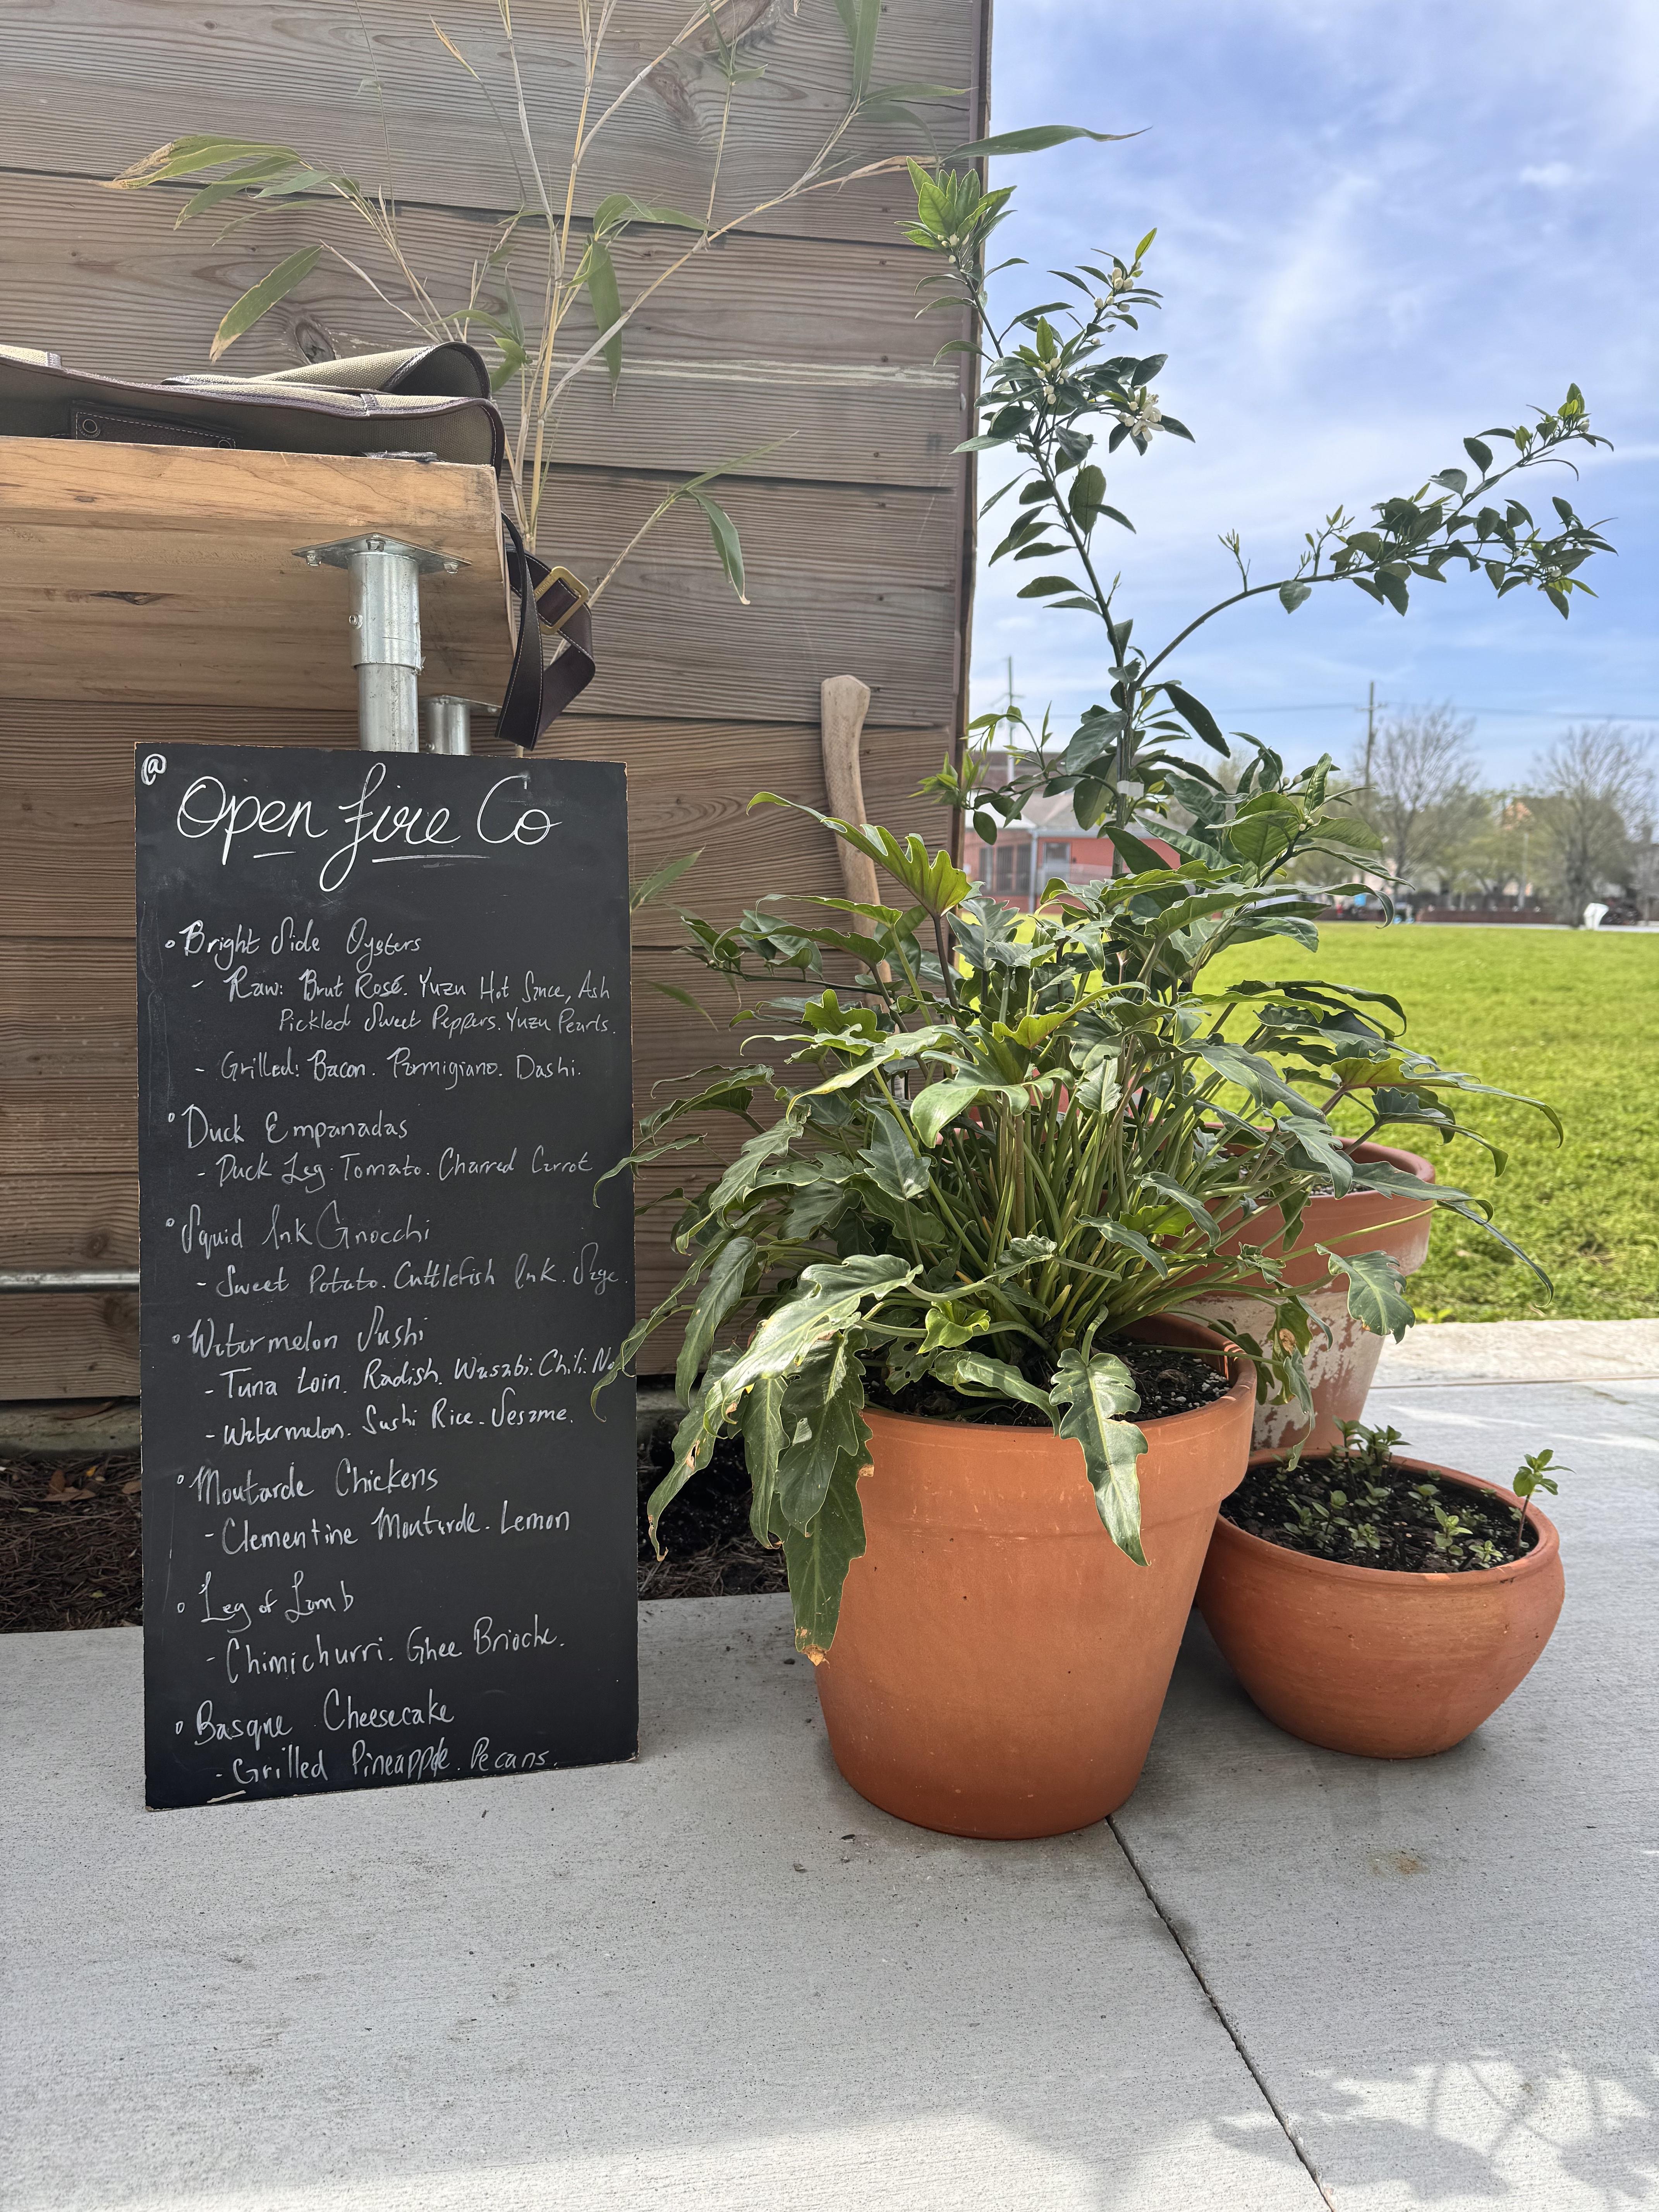 @
Open fire Co
Bright Side Oysters
- Raw: Brut Rosé. Yuzu Hot Sauce, Ash
Pickled Sweet Peppers. Yuzu Pearls.
- Grilled: Bacon. Parmigiano. Dashi.
Duck Empanadas
- Duck Leg. Tomato. Charred Carrot
Squid Ink Gnocchi
- Sweet Potato. Cuttlefish Ink. Sage.
Watermelon Sushi
- Tuna Loin. Radish. Wasabi. Chili.
- Watermelon. Sushi Rice. Sesame.
Moutarde Chickens
- Clementine Moutarde. Lemon
Leg of Lamb
- Chimichurri. Ghee Brioche.
Basque Cheesecake
- Grilled Pineapple. Pecans.